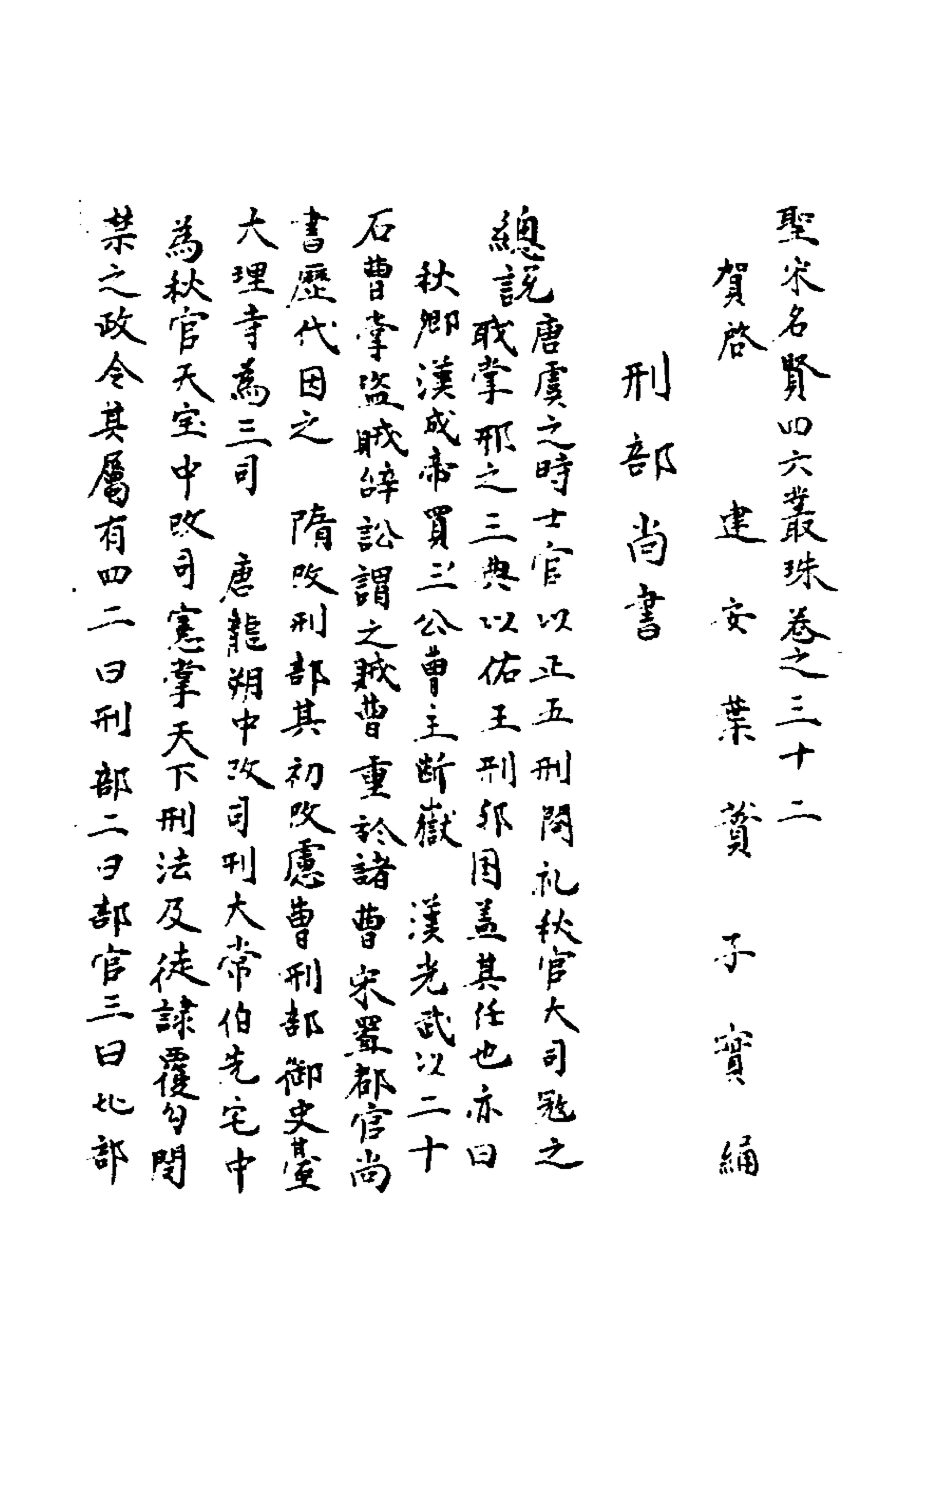 聖宋名賢四六叢珠卷之三十二
賀啓 建安葉蕡子實編
刑部尚書
總説唐虞之時士官以正五刑周礼秋官大司冦之
職掌邢之三典以佑王刑邦国盖其任也亦曰
秋卿漢成帝買三公曹主断獄 漢光武以二十
石曹掌盗賊辞訟謂之贼曹重於諸曹宋置都官尚
書歷代因之 隋改刑部其初改慮曹刑部御史臺
大理寺為三司 唐龍朔中改司刑大常伯先宅中
為秋官天宝中改司憲掌天下刑法及徒隷覆勾関
禁之政令其屬有四二曰刑部二曰部官三曰比部